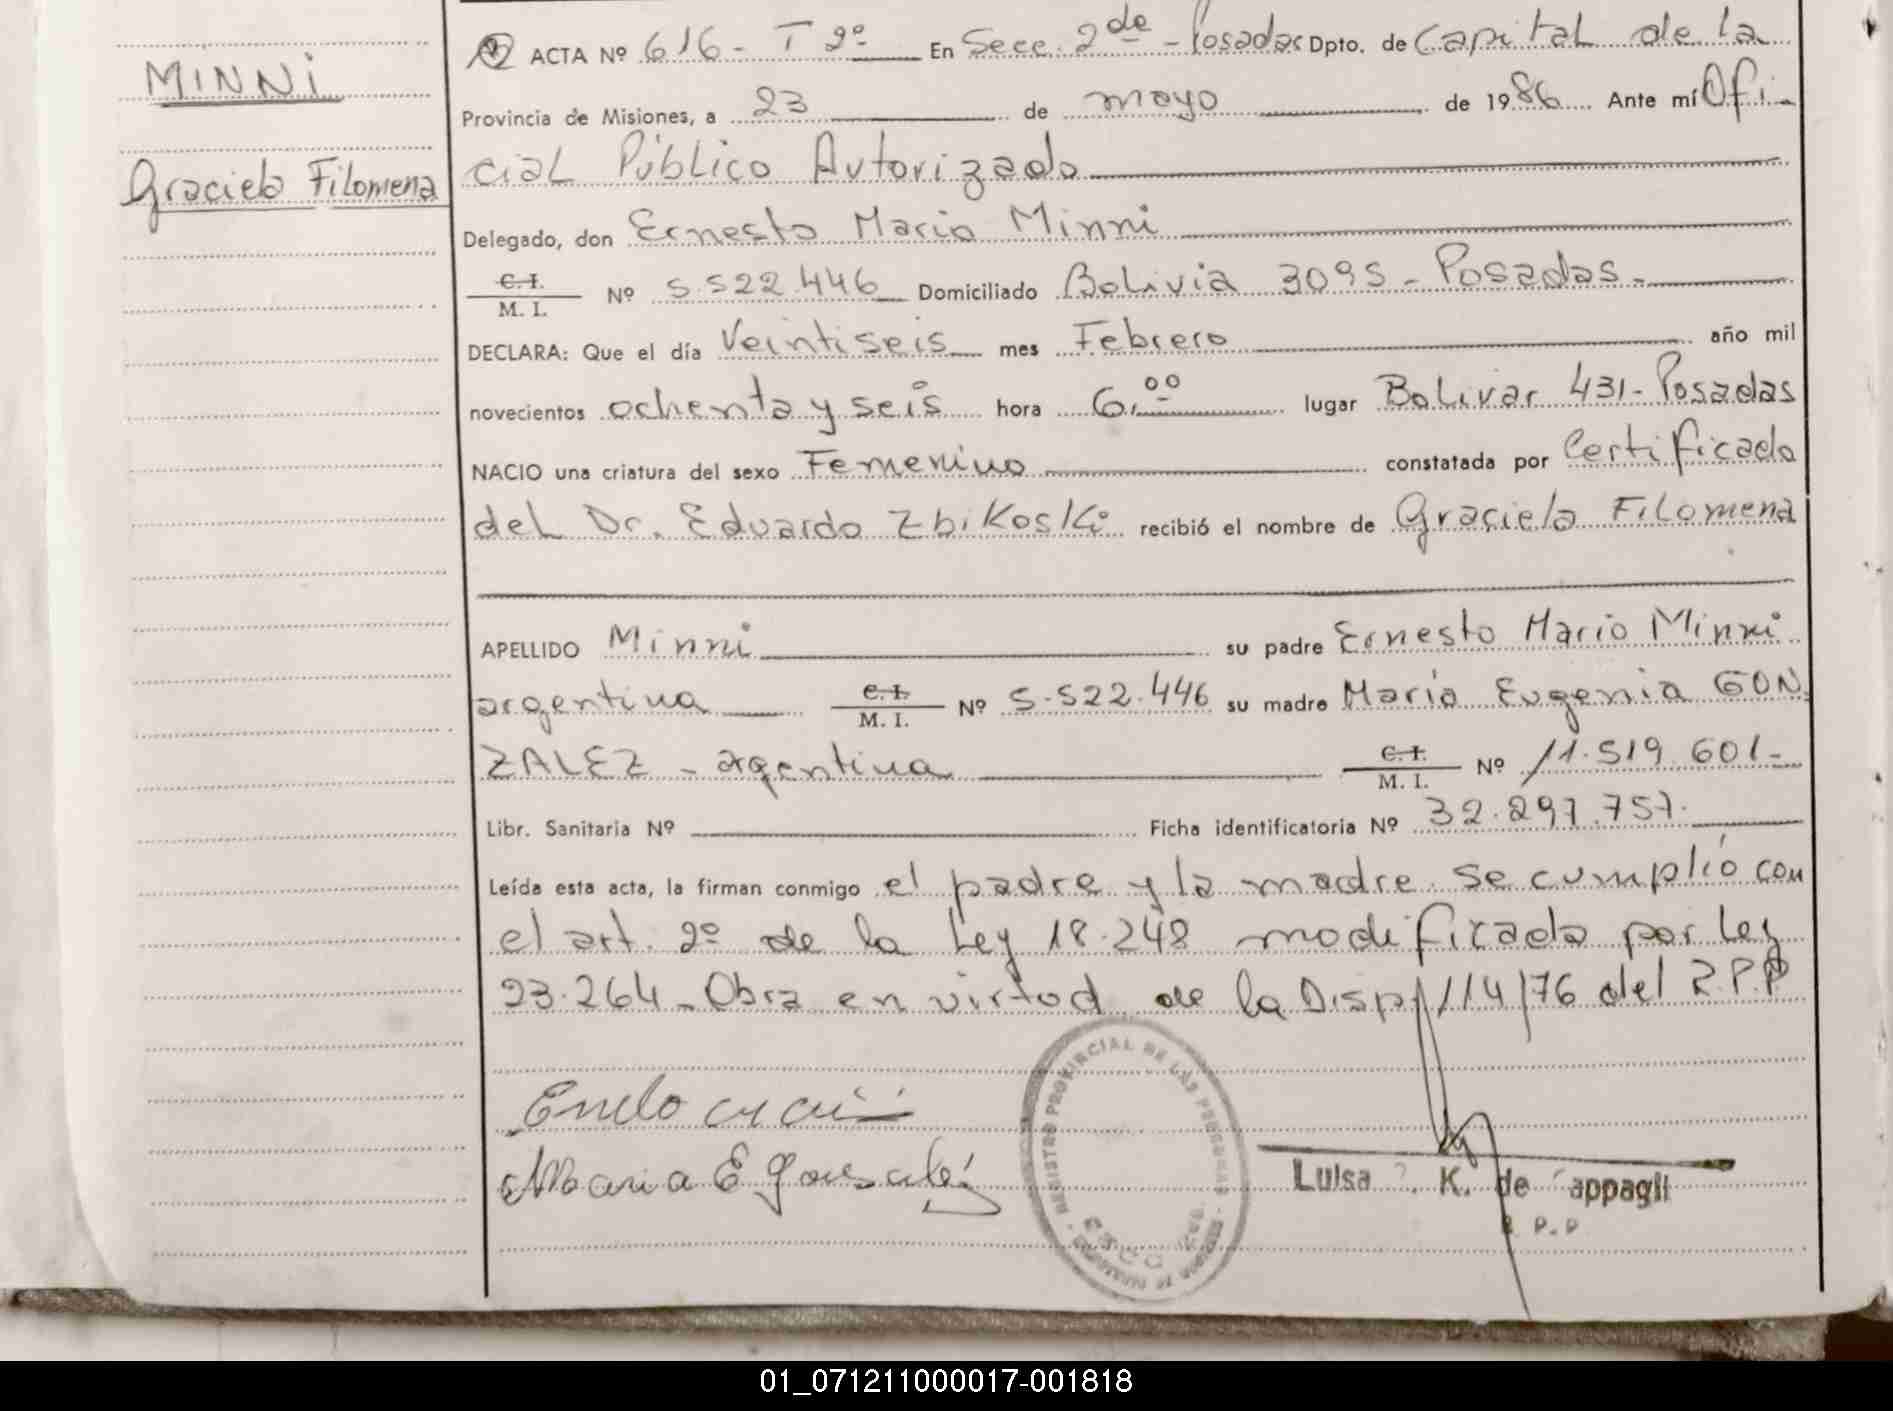 MINNI
Graciela Filomena
ACTA Nº 616 - T 2º En Secc. 2da - Posadas Dpto. de Capital de la
Provincia de Misiones, a 23 de mayo de 1986 Ante mí Ofi-
cial Público Autorizado
Delegado, don Ernesto Mario Minni
C.I.
M. I. Nº 5.522.446 Domiciliado Bolivia 3095 - Posadas -
DECLARA: Que el día Veintiseis mes Febrero año mil
novecientos ochenta y seis hora 6,00 lugar Bolivar 431 - Posadas
NACIO una criatura del sexo Femenino constatada por Certificado
del Dr. Eduardo Zbikoski recibió el nombre de Graciela Filomena
APELLIDO Minni su padre Ernesto Mario Minni
argentina C.I. M. I. Nº 5.522.446 su madre Maria Eugenia GON
ZALEZ - argentina C.I. M. I. Nº 11.519.601 -
Libr. Sanitaria Nº Ficha identificatoria Nº 32.297.757.
Leída esta acta, la firman conmigo el padre y la madre. Se cumplió con
el art. 2º de la Ley 18.248 modificado por Ley
23.264 - Obra en virtud de la Disp. 114/76 del R.P.P
Maria E Gonzalez
REGISTRO PROVINCIAL DE LAS PERSONAS
Luisa K. de appagli
P.P
01_071211000017-001818